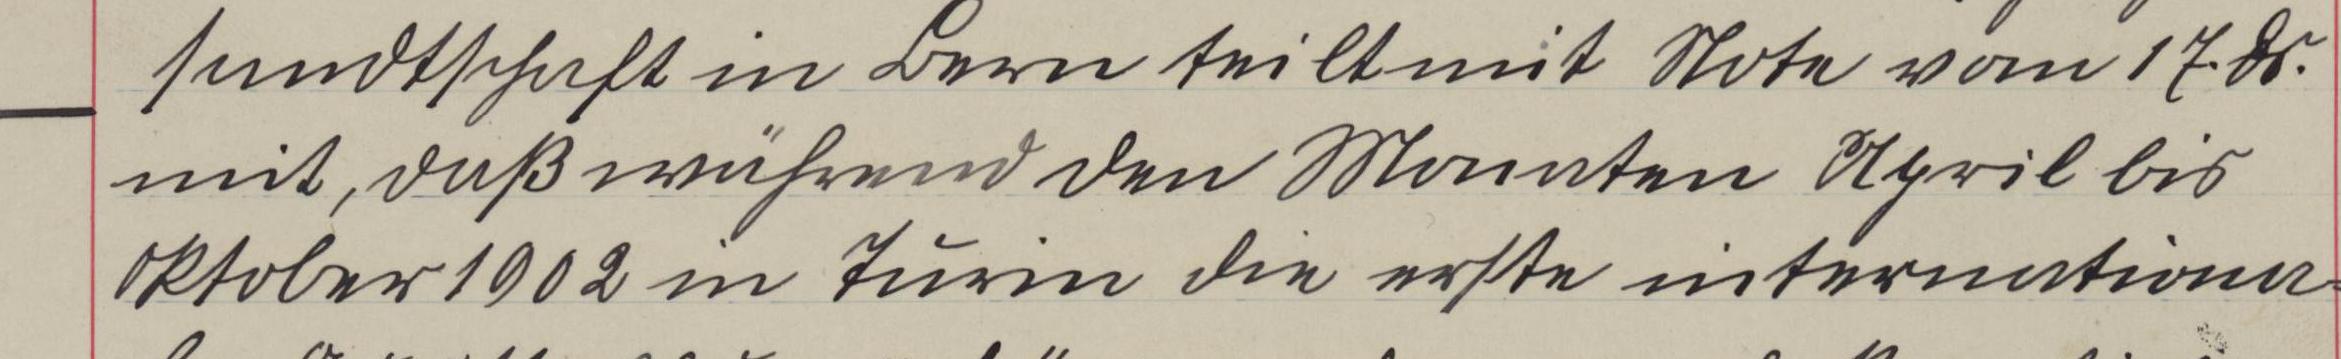 sandtschaft in Bern teilt mit Note vom 17. ds.
mit, daß während den Monaten April bis
Oktober 1902 in Turin die erste internationa-